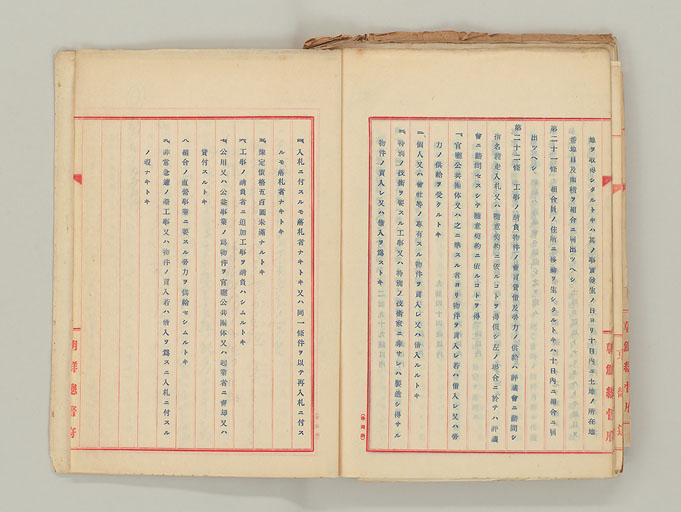 地ヲ取得シタルトキハ其ノ事實發生ノ日ヨリ十日內ニ土地ノ所在地
番地目及面積ヲ組合ニ屆出ツヘシ
第二十一條 組合員ノ住所ニ移動ヲ生シタルトキハ十日內ニ組合ニ屆
出ツヘシ
第二十二條 工事ノ請負物件ノ賣買貸借及勞力ノ供給ハ評議會ニ諮問シ
指名競走入札又ハ隨意契約ニ依ルコトヲ得但シ左ノ場合ニ於テハ評議
會ニ諮問セスシテ隨意契約ニ依ルコトヲ得
一、官廳公共團体又ハ之ニ準スル者ヨリ物件ヲ買入レ若ハ借入レ又ハ勞
力ノ供給ヲ受クルトキ
二、個人又ハ會社等ノ專有スル物件ヲ買入レ又ハ借入ルルトキ
三、特別ノ技術ヲ要スル工事又ハ特別ノ技術家ニ非サレハ製造シ得サル
物件ノ買入レ又ハ借入ヲ爲ストキ
四、入札ニ付スルモ落札者ナキトキ又ハ同一條件ヲ以テ再入札ニ付ス
ルモ落札者ナキトキ
五、豫定價格五百圓未滿ナルトキ
六、工事ノ請負者ニ追加工事ヲ請負ハシムルトキ
七、公用又ハ公益事業ノ爲物件ヲ官廳公共團体又ハ起業者ニ賣却又ハ
貸付スルトキ
八、組合ノ直營事業ニ要スル勞力ヲ供給セシムルトキ
九、非常急遽ノ際工事又ハ物件ノ買入若ハ借入ヲ爲スニ入札ニ付スル
ノ暇ナキトキ
朝鮮總督府
朝鮮總督府